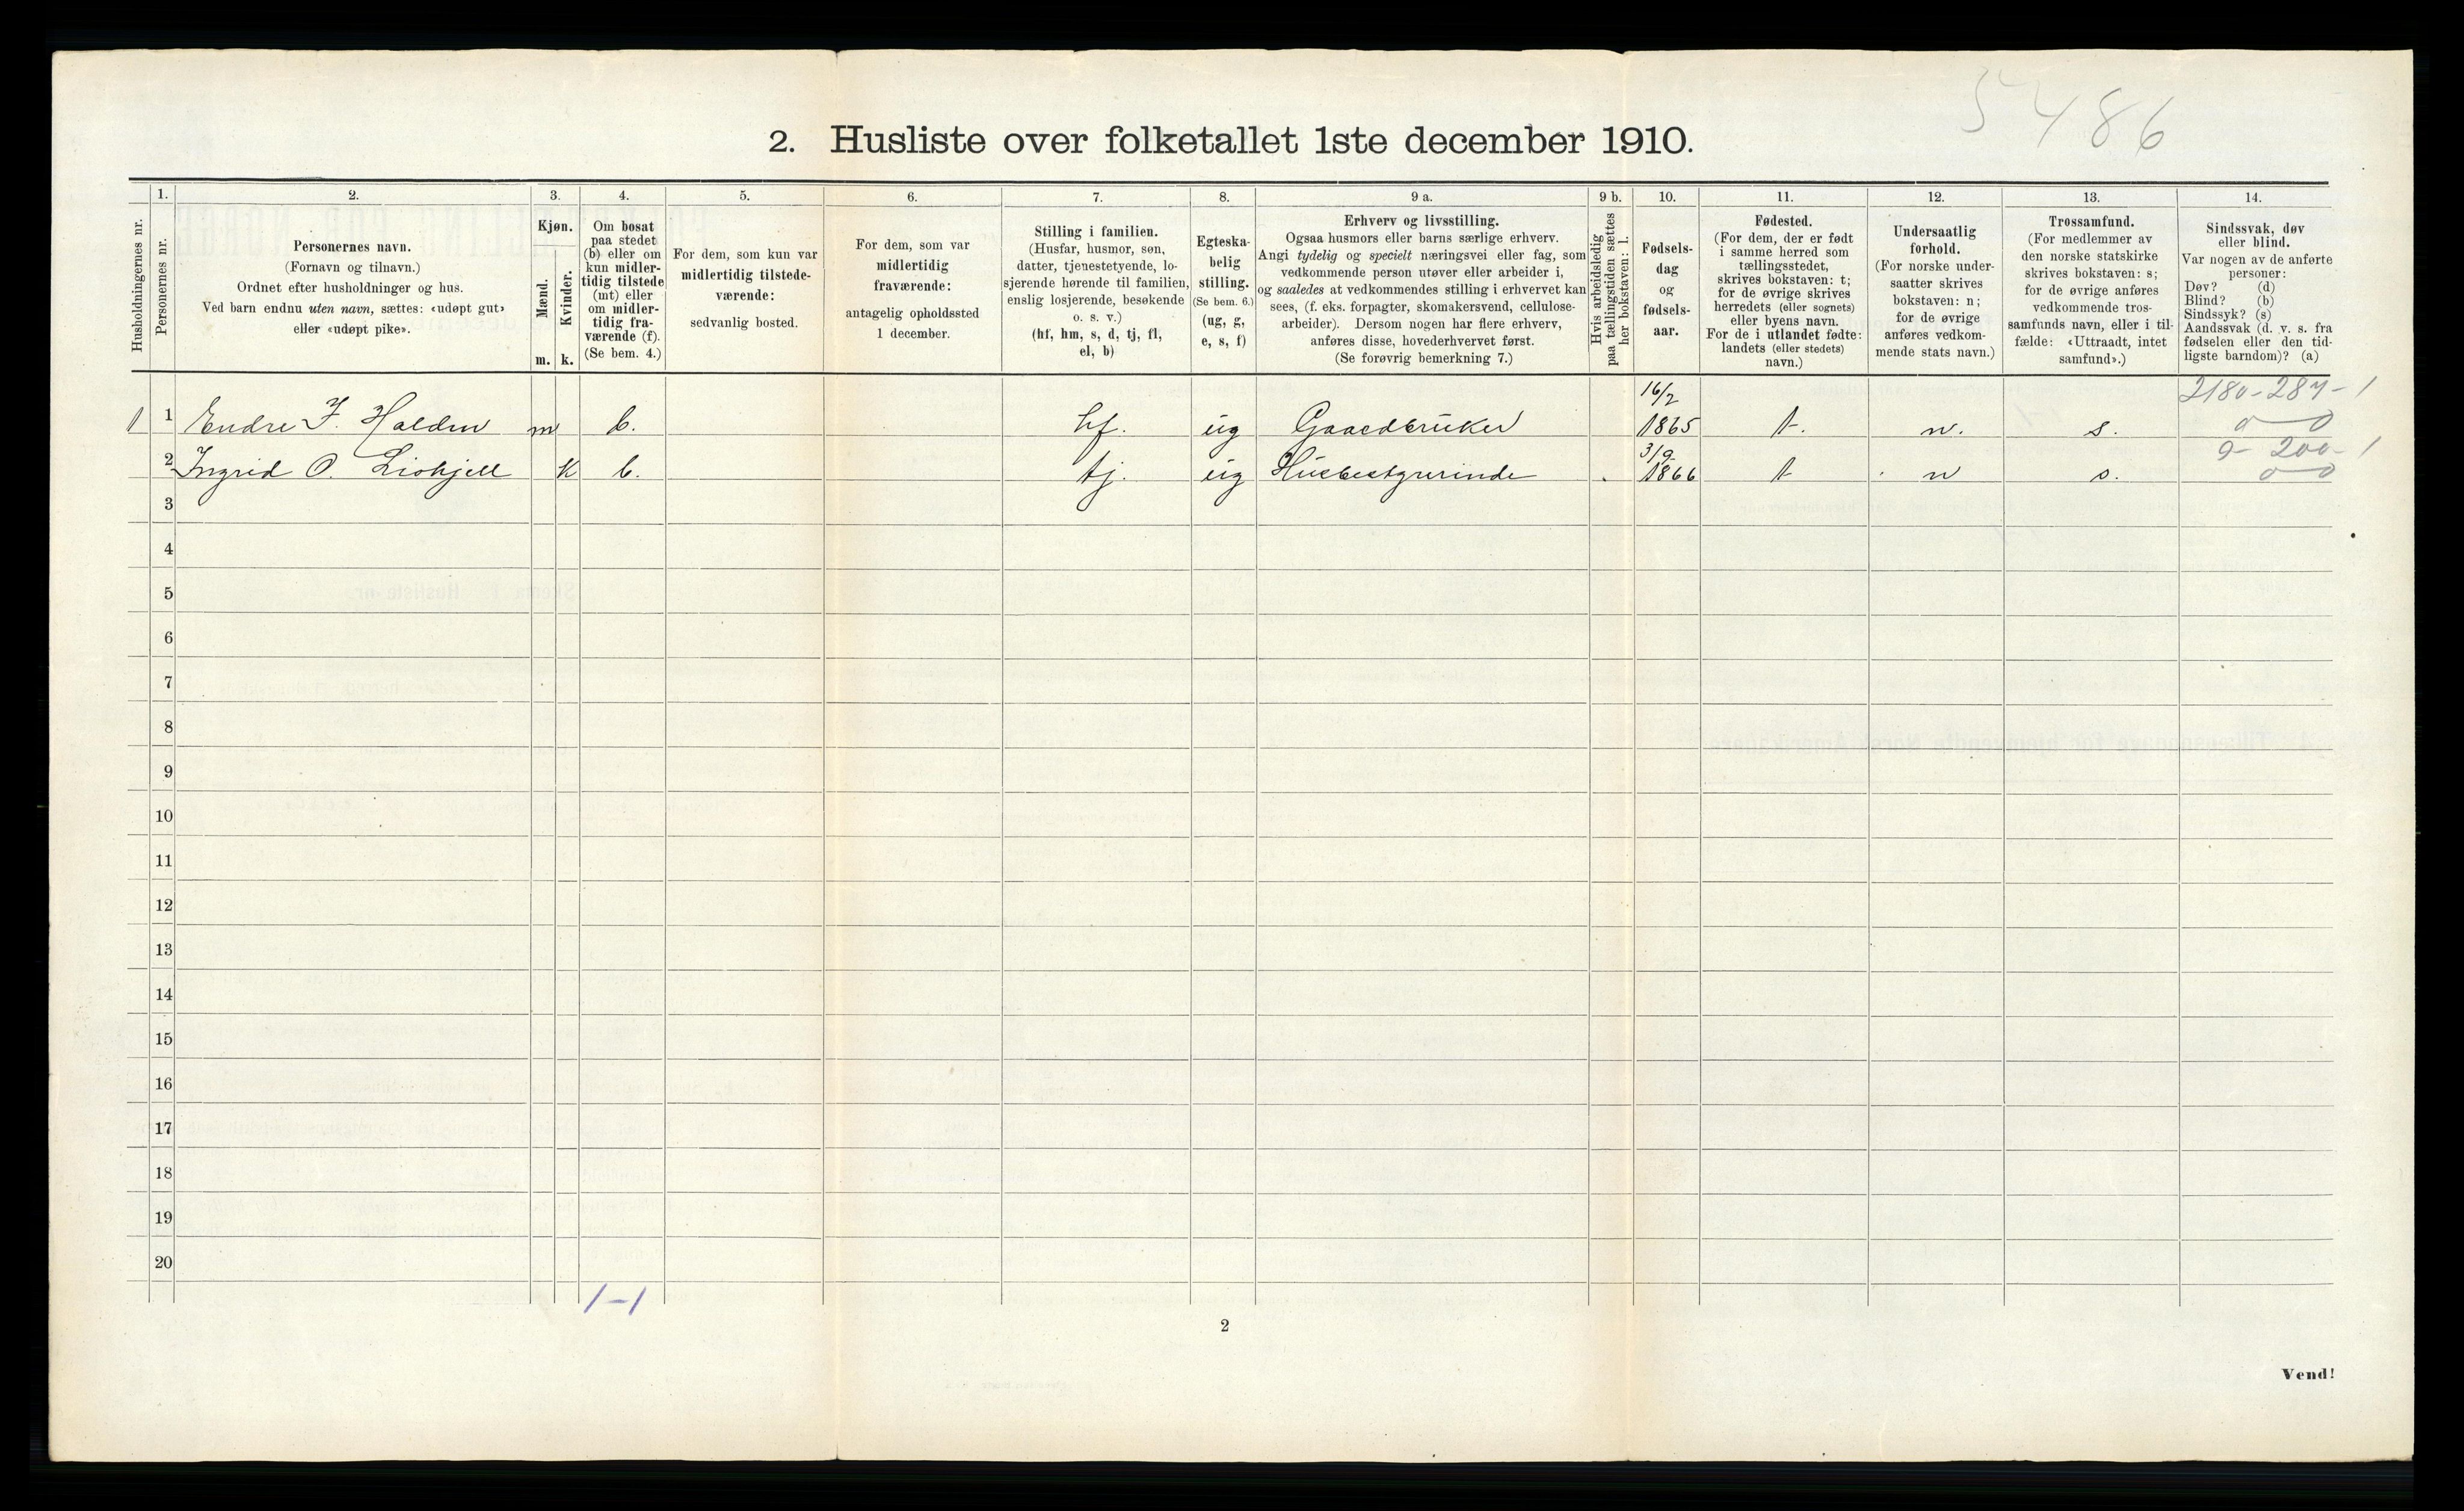 5486
2. Husliste over folketallet 1ste december 1910.
Husholdningernes nr.
1.
Personernes nr.
2.
Personernes navn.
(Fornavn og tilnavn.)
Ordnet efter husholdninger og hus.
Ved barn endnu uten navn, sættes: «udøpt gut»
eller «udøpt pike».
3.
Kjøn.
Mænd.
m.
Kvinder.
k.
4.
Om bosat
paa stedet
(b) eller om
kun midler-
tidig tilstede
(mt) eller
om midler-
tidig fra-
værende (f).
(Se bem. 4.)
5.
For dem, som kun var
midlertidig tilstede-
værende:
sedvanlig bosted.
6.
For dem, som var
midlertidig
fraværende:
antagelig opholdssted
1 december.
7.
Stilling i familien.
(Husfar, husmor, søn,
datter, tjenestetyende, lo-
sjerende hørende til familien,
enslig losjerende, besøkende
o. s. v.)
(hf, hm, s, d, tj, fl,
el, b)
8.
Egteska-
belig
stilling.
(Se bem. 6.)
(ug, g,
e, s, f)
9 a.
Erhverv og livsstilling.
Ogsaa husmors eller barns særlige erhverv.
Angi tydelig og specielt næringsvei eller fag, som
vedkommende person utøver eller arbeider i,
og saaledes at vedkommendes stilling i erhvervet kan
sees, (f. eks. forpagter, skomakersvend, cellulose-
arbeider). Dersom nogen har flere erhverv,
anføres disse, hovederhvervet først.
(Se forøvrig bemerkning 7.)
9 b.
Hvis arbeidsledig
paa tællingstiden sættes
her bokstaven: l.
10.
Fødsels-
dag
og
fødsels-
aar.
11.
Fødested.
(For dem, der er født
i samme herred som
tællingsstedet,
skrives bokstaven: t;
for de øvrige skrives
herredets (eller sognets)
eller byens navn.
For de i utlandet fødte:
landets (eller stedets)
navn.)
12.
Undersaatlig
forhold.
(For norske under-
saatter skrives
bokstaven: n;
for de øvrige
anføres vedkom-
mende stats navn.)
13.
Trossamfund.
(For medlemmer av
den norske statskirke
skrives bokstaven: s;
for de øvrige anføres
vedkommende tros-
samfunds navn, eller i til-
fælde: «Uttraadt, intet
samfund».)
14.
Sindssvak, døv
eller blind.
Var nogen av de anførte
personer:
Døv? (d)
Blind? (b)
Sindssyk? (s)
Aandssvak (d. v. s. fra
fødselen eller den tid-
ligste barndom)? (a)
16/2 2180-287-1
1 1 Endre I. Halden m b. hf. ug Gaardbruker 1865 t. n. s. 0 0
3/9 9-200-1
2 Ingrid O. Liokjell k b. tj. ug Husbestyrerinde 1866 t n s. 0 0
3
4
5
6
7
8
9
10
11
12
13
14
15
16
17
18
19
20
1-1
2
Vend!